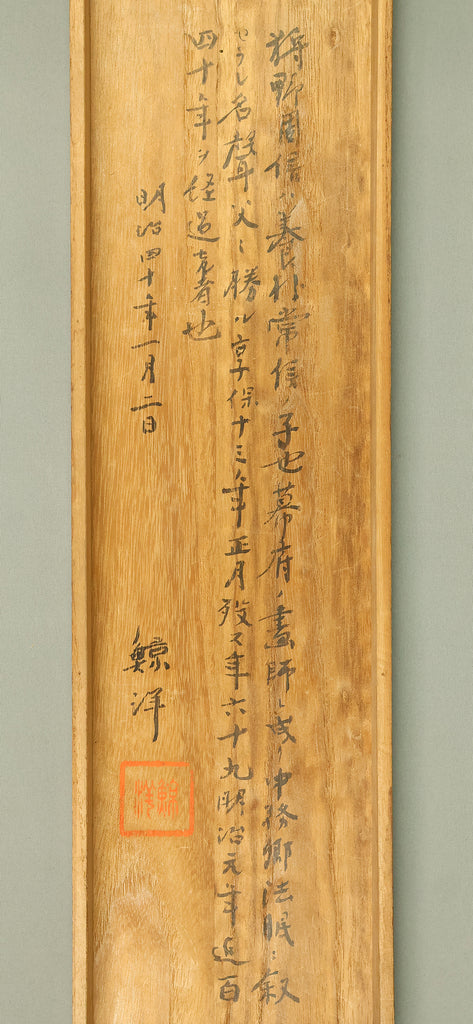 狩野周信ハ養朴常信ノ子也幕府ノ畫師ト成リ中務卿法眼ニ叙
せらし名聲父ニ勝ル享保十三年正月歿ス年六十九明治元年迠百
四十年ヲ経過セ者也
明治四十年一月二日
鯨洋
鯨洋